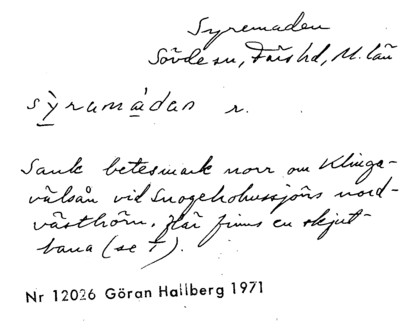 Syremaden
Sövde sn, Färs hd, M. län
sỳramàdan r.
Sank betesmark norr om Klinga-
välsån vid Snogeholmssjöns nord-
västhörn. Här finns en skjut-
bana (se T).
Nr 12026 Göran Hallberg 1971